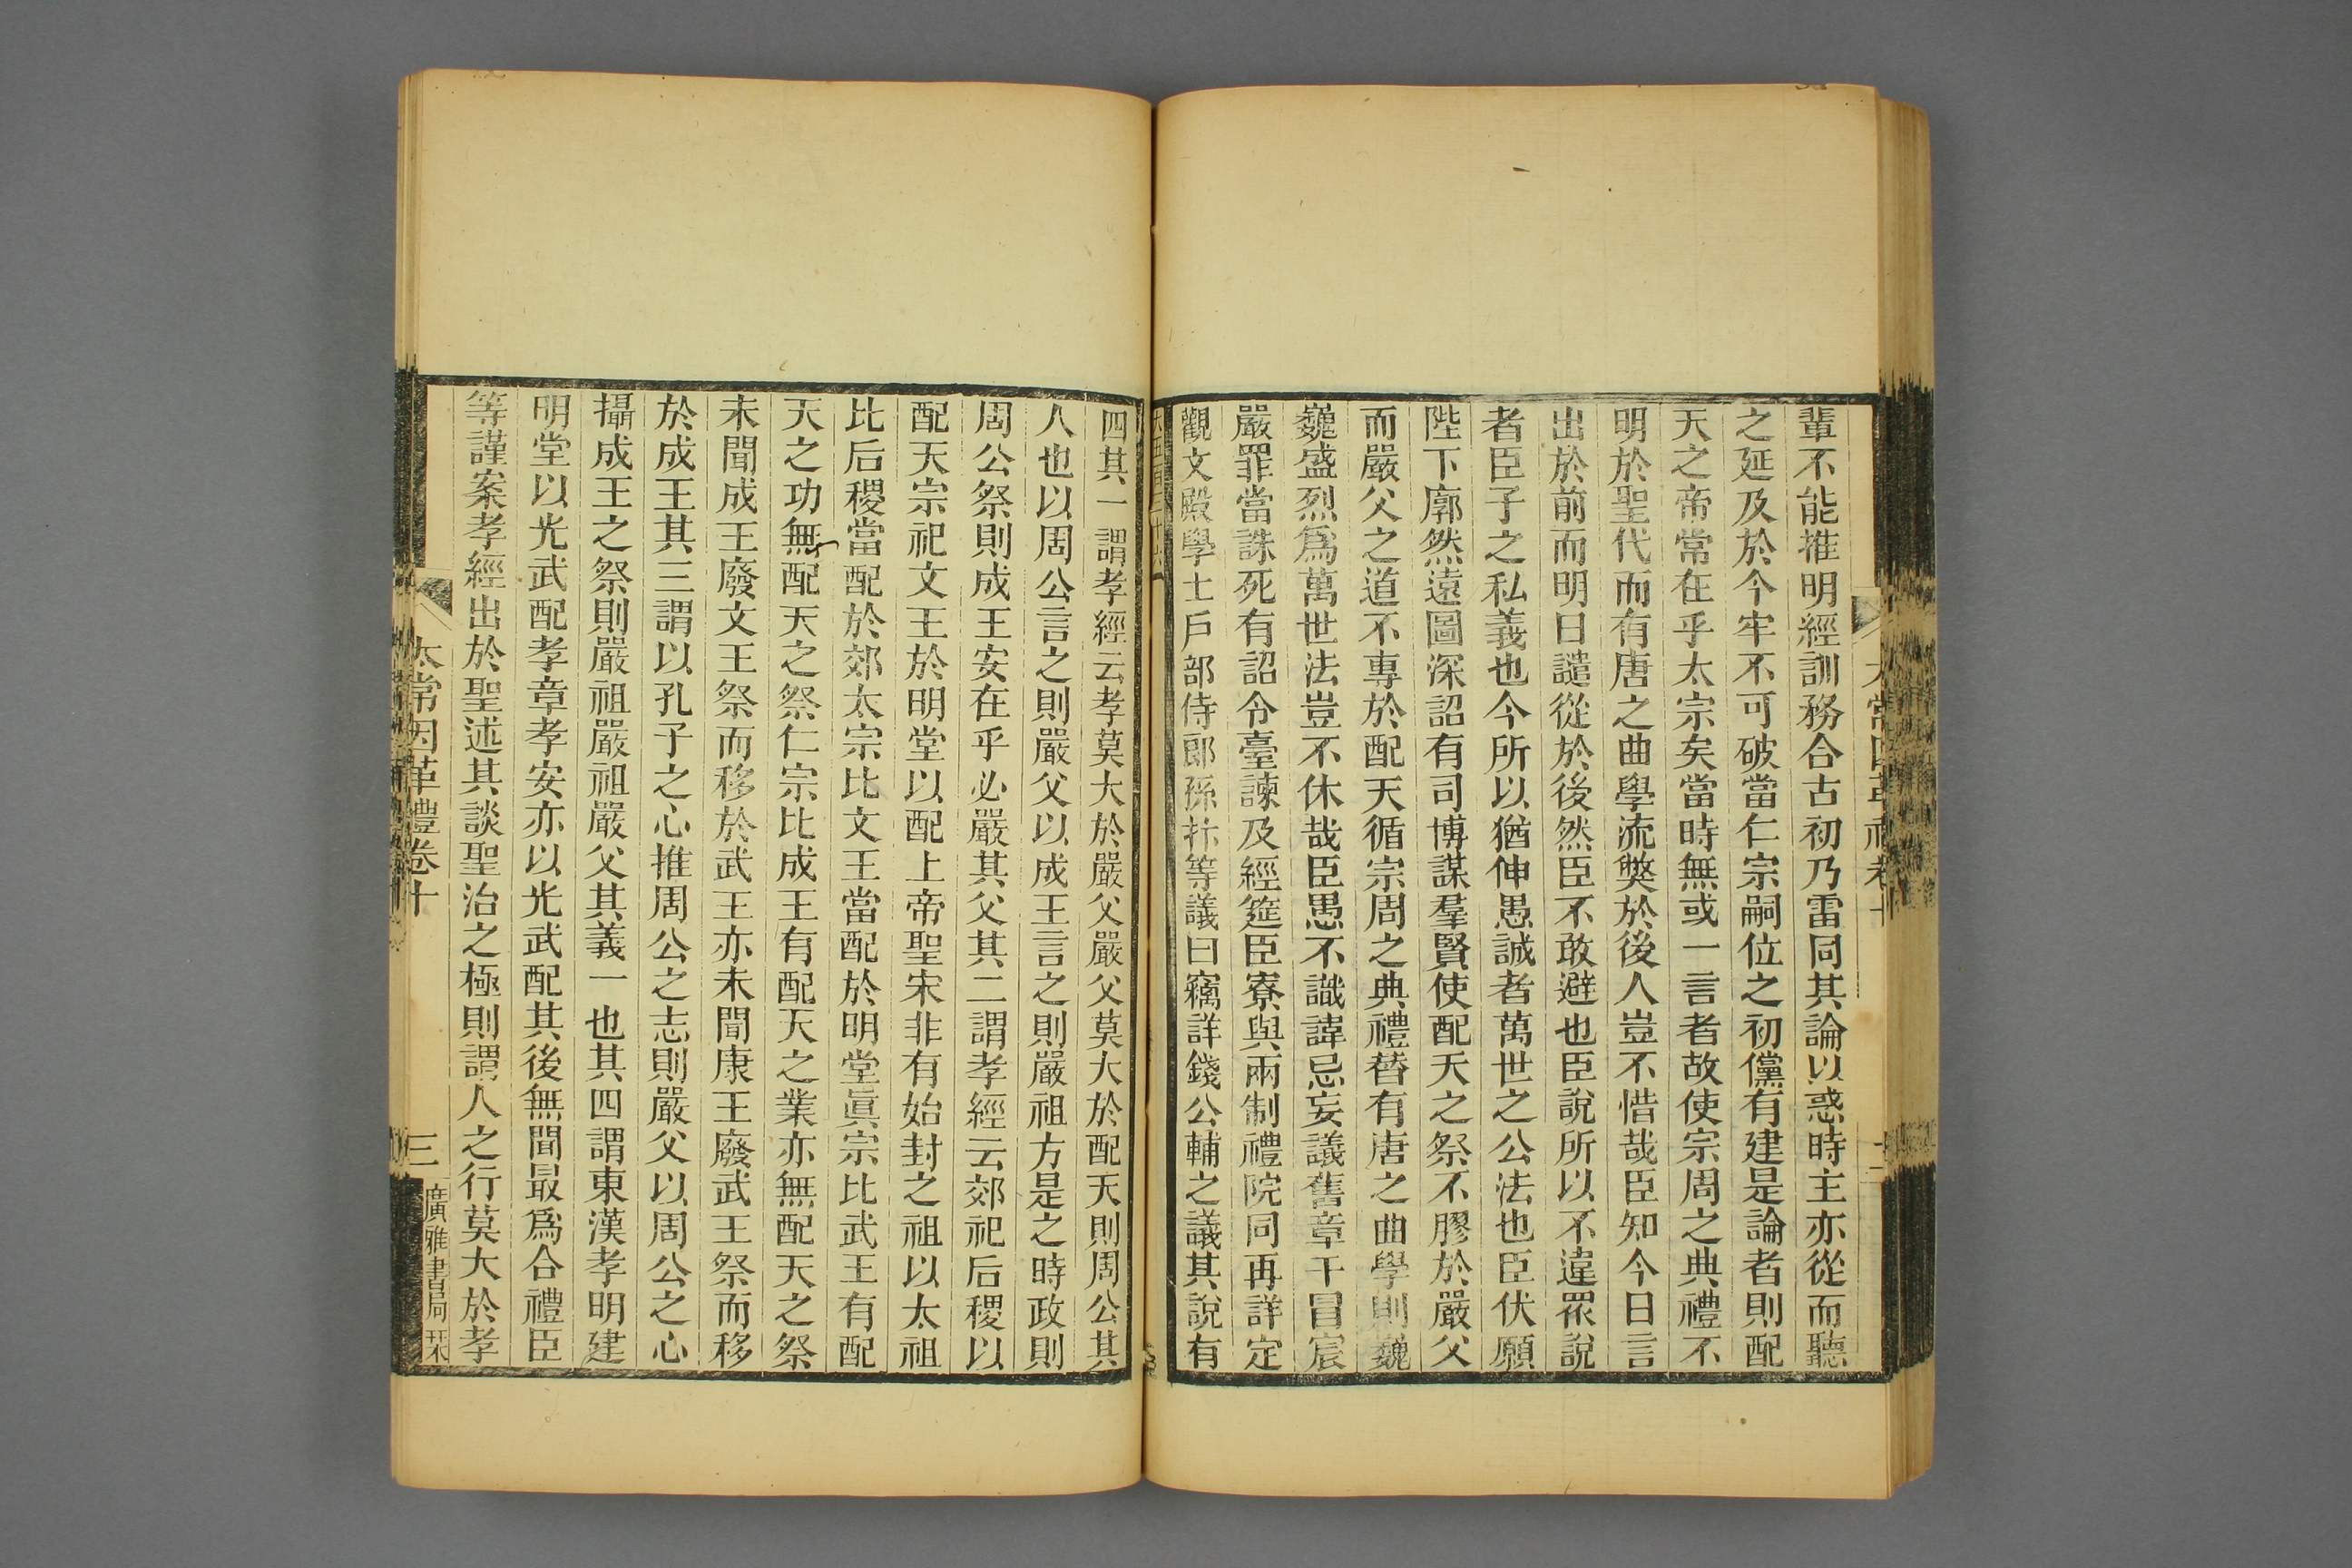 輩不能推明經訓務合古初乃雷同其論以惑時主亦從而聽
之延及於今牢不可破當仁宗嗣位之初儻有建是論者則配
天之帝常在乎太宗矣當時無或一言者故使宗周之典禮不
明於聖代而有唐之曲學流獘於後人豈不惜哉臣知今日言
出於前而明日譴從於後然臣不敢避也臣說所以不違眾說
者臣子之私義也今所以猶伸愚誠者萬世之公法也臣伏願
陛下廓然遠圖深詔有司博謀羣賢使配天之祭不膠於嚴父
而嚴父之道不專於配天循宗周之典禮替有唐之曲學則巍
巍盛烈爲萬世法豈不休哉臣愚不識諱忌妄議舊章干冒宸
嚴罪當誅死有詔令臺諫及經筵臣寮與兩制禮院同再詳定
觀文殿學士戶部侍郎孫抃等議曰竊詳錢公輔之議其說有
四其一謂孝經云孝莫大於嚴父嚴父莫大於配天則周公其
人也以周公言之則嚴父以成王言之則嚴祖方是之時政則
周公祭則成王安在乎必嚴其父其二謂孝經云郊祀后稷以
配天宗祀文王於明堂以配上帝聖宋非有始封之祖以太祖
比后稷當配於郊太宗比文王當配於明堂眞宗比武王有配
天之功無配天之祭仁宗比成王有配天之業亦無配天之祭
未聞成王廢文王祭而移於武王亦未聞康王廢武王祭而移
於成王其三謂以孔子之心推周公之志則嚴父以周公之心
攝成王之祭則嚴祖嚴祖嚴父其義一也其四謂東漢孝明建
明堂以光武配孝章孝安亦以光武配其後無聞最爲合禮臣
等謹案孝經出於聖述其談聖治之極則謂人之行莫大於孝
太常因革禮卷十
三
廣雅書局栞